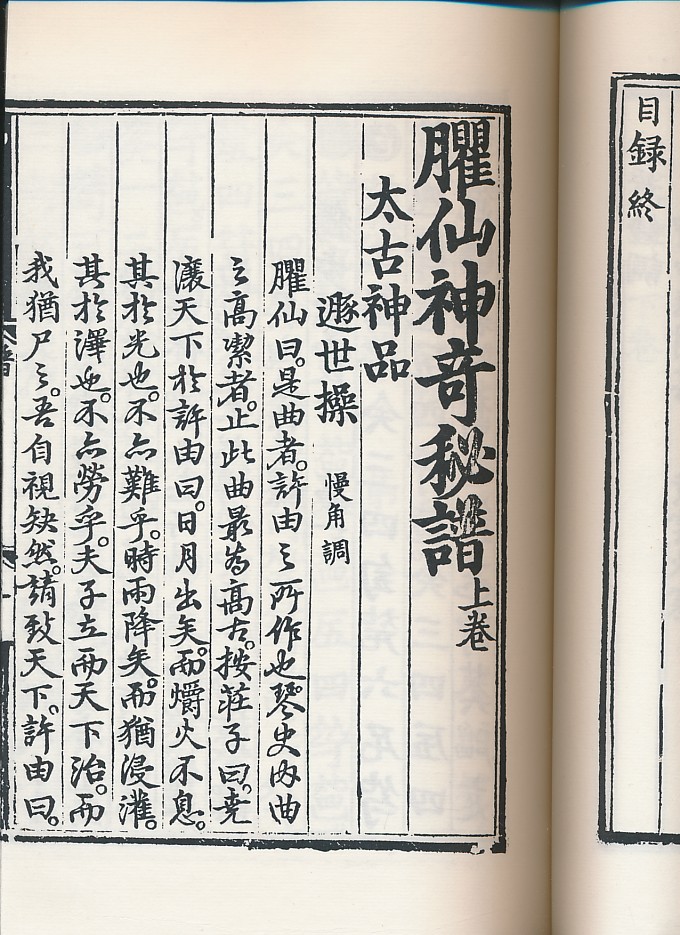 目録終
臞仙神奇秘譜上卷
太古神品
遯世操 慢角調
臞仙曰。是曲者。許由之所作也。琴史內曲
之高潔者。止此曲最爲高古。按莊子曰。堯
讓天下於許由曰。日月出矣。而爝火不息。
其於光也。不亦難乎。時雨降矣。而猶浸灌。
其於澤也。不亦勞乎。夫子立而天下治。而
我猶尸之。吾自視缺然。請致天下。許由曰。